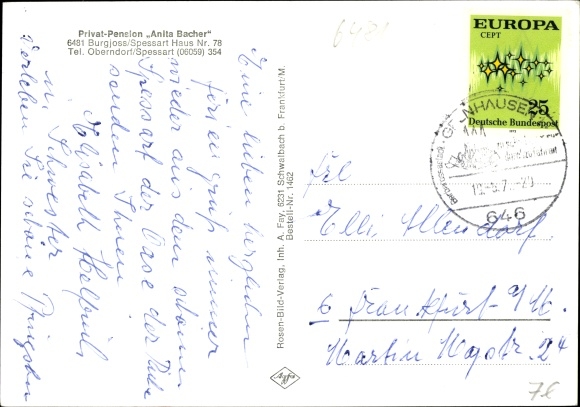 Privat-Pension „Anita Bacher"
6481 Burgjoss/Spessart Haus Nr. 78
Tel. Oberndorf/Spessart (06059) 354
Eine lieben herzlichen
Feriengruß immer
wieder aus dem schönen
Spessart der Oase der Ruhe
senden Ihnen
Elisabeth
u. Schwester
Verleben Sie schöne Pfingsten
Rosen-Bild-Verlag, Inh. A. Fay, 6231 Schwalbach b. Frankfurt/M.
Bestell-Nr. 1462
Agfa
6481
EUROPA
CEPT
25
Deutsche Bundespost
GELNHAUSEN
646
Frl
Elli Allendorf
6 Frankfurt a/M.
Martin 24
7E